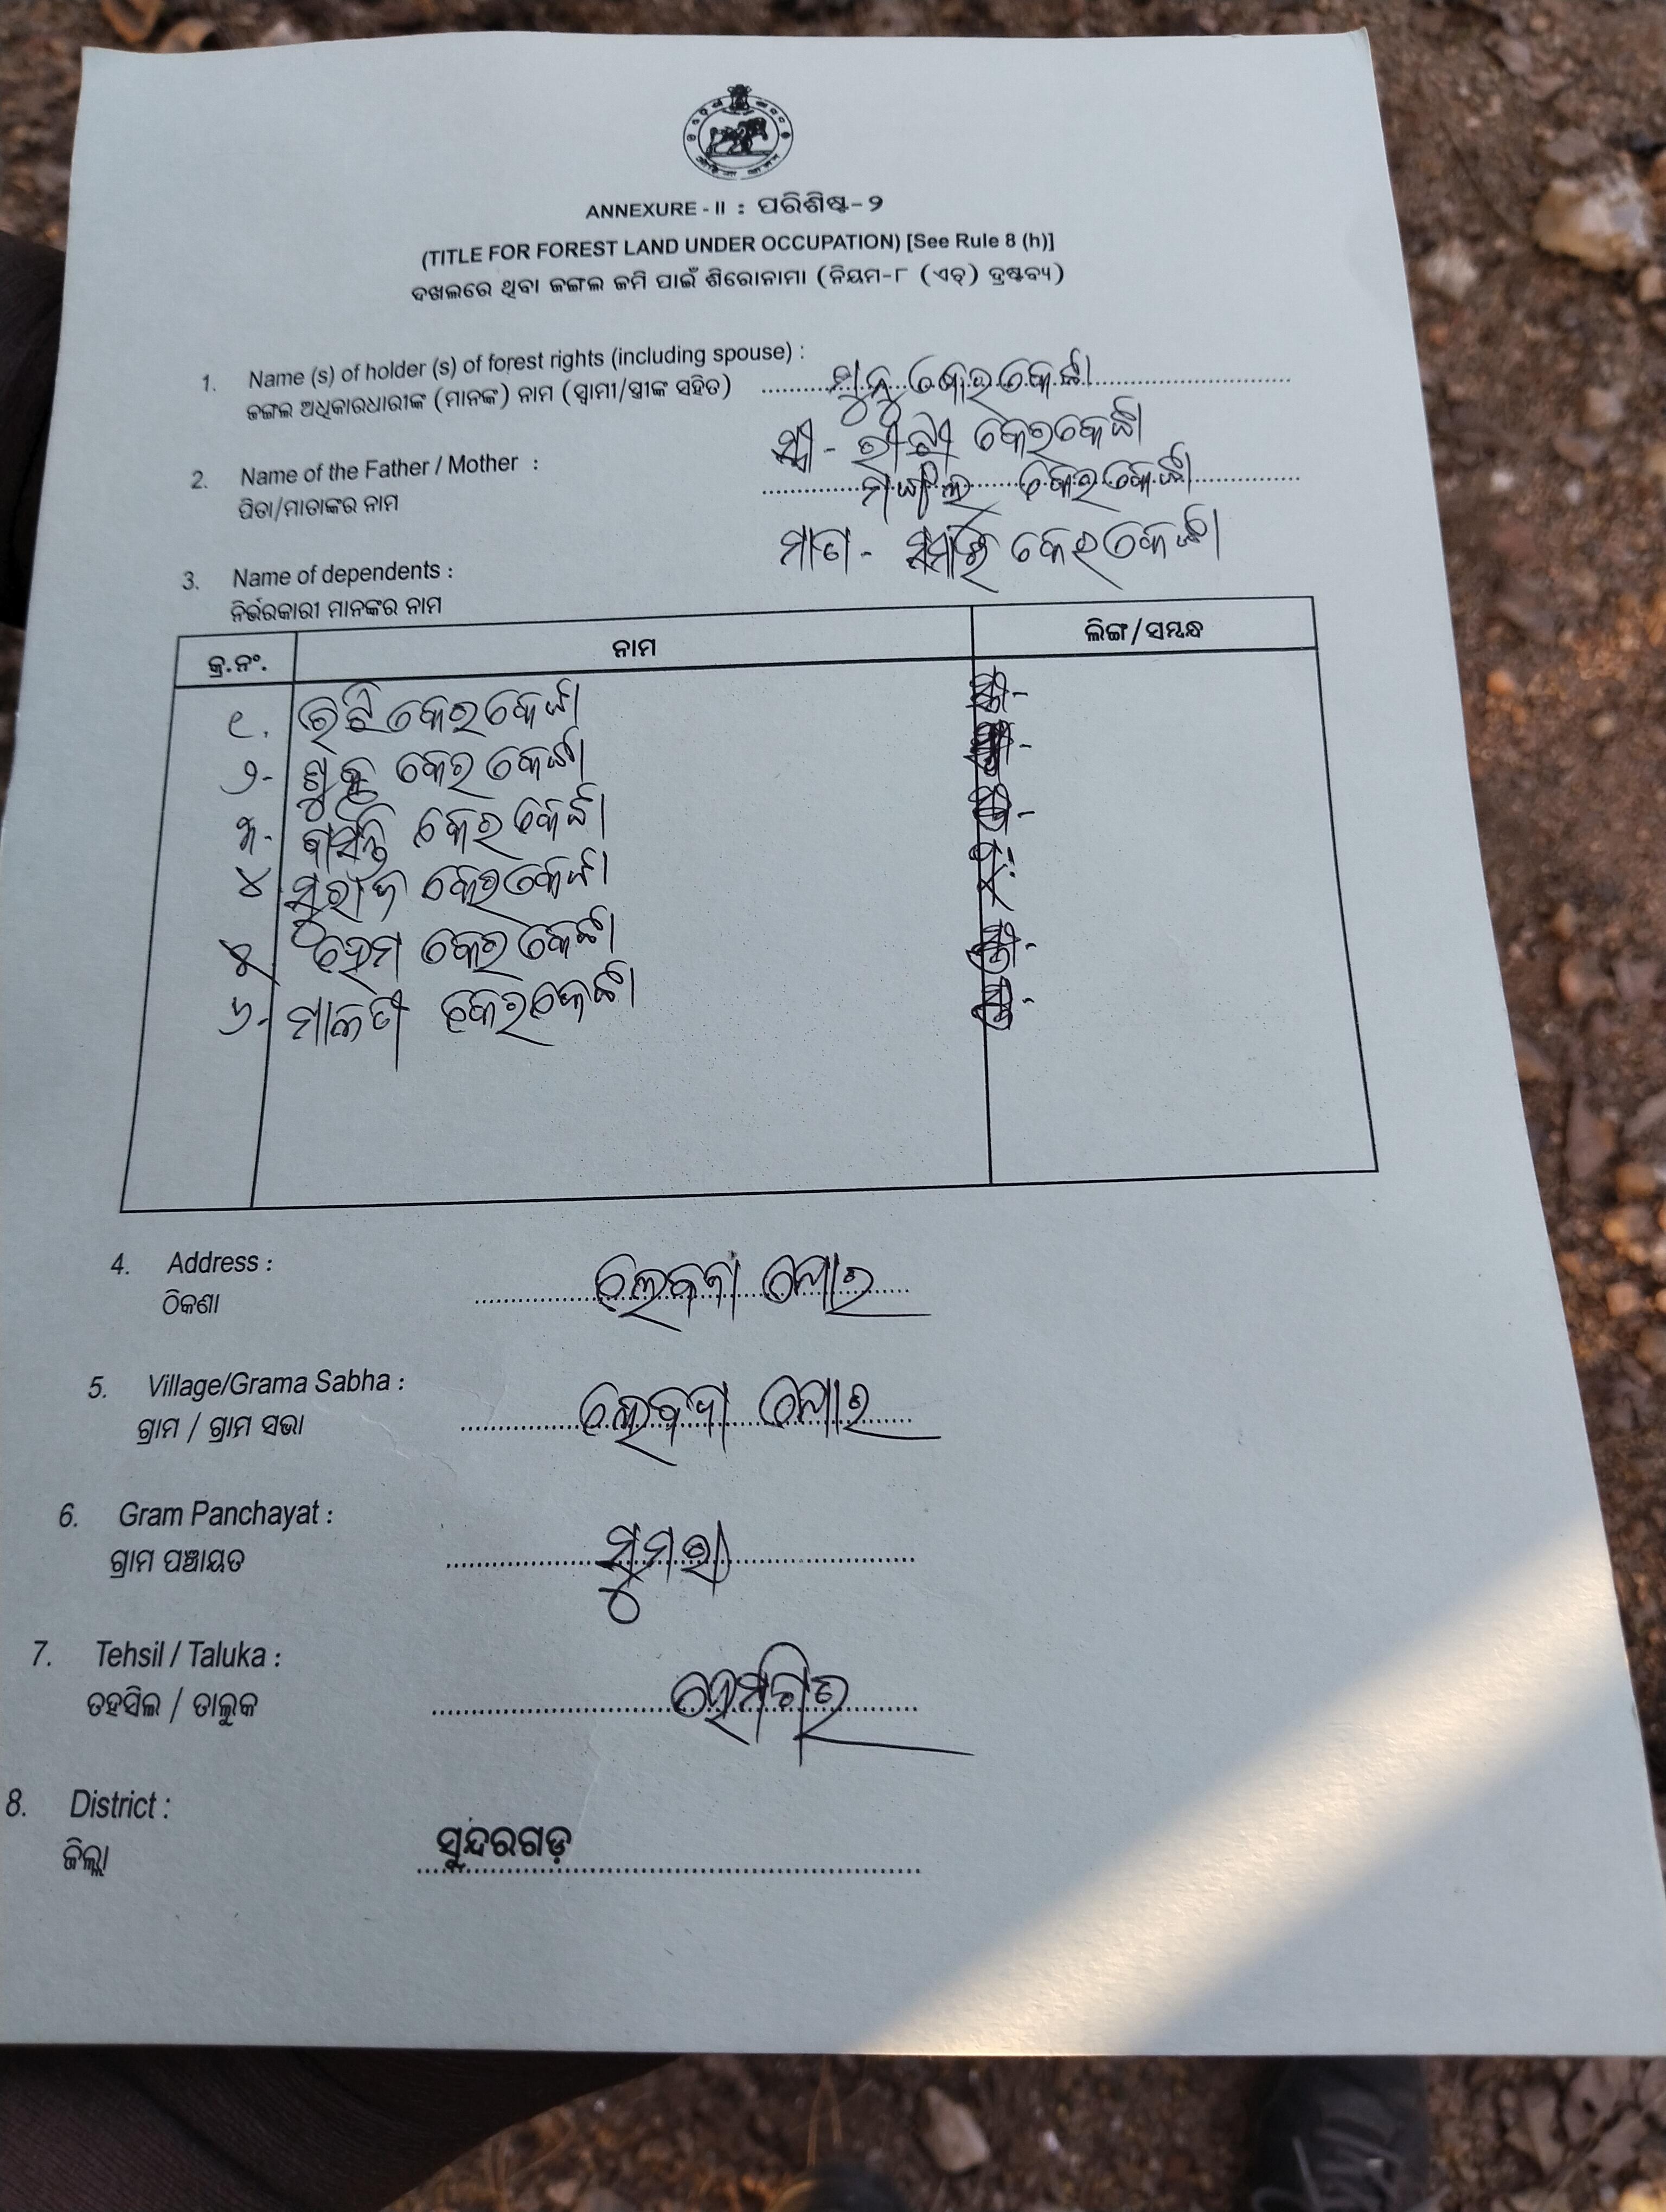 ANNEXURE - II : ପରିଶିଷ୍ଟ-୨
(TITLE FOR FOREST LAND UNDER OCCUPATION) [See Rule 8 (h)]
ଦଖଲରେ ଥିବା ଜଙ୍ଗଲ ଜମି ପାଇଁ ଶିରୋନାମା (ନିୟମ-୮ (ଏଚ୍) ଦ୍ରଷ୍ଟବ୍ୟ)
1. Name (s) of holder (s) of forest rights (including spouse) :
ଜଙ୍ଗଲ ଅଧିକାରଧାରୀଙ୍କ (ମାନଙ୍କ) ନାମ (ସ୍ୱାମୀ/ସ୍ତ୍ରୀଙ୍କ ସହିତ) ମୁନୁ କେରକେଟ୍ଟା
ସ୍ତ୍ରୀ - କେରକେଟ୍ଟା
2. Name of the Father / Mother :
କେରକେଟ୍ଟା
ପିତା/ମାତାଙ୍କର ନାମ
ମାତା - କେରକେଟ୍ଟା
3. Name of dependents :
ନିର୍ଭରକାରୀ ମାନଙ୍କର ନାମ
କ୍ର.ନଂ. ନାମ ଲିଙ୍ଗ/ସମ୍ବନ୍ଧ
୧. କେରକେଟ୍ଟା
୨- କେରକେଟ୍ଟା
୩- ବାସନ୍ତି କେରକେଟ୍ଟା
୪ ସୁରାଜ କେରକେଟ୍ଟା
୫ ହେମ କେରକେଟ୍ଟା
୬- ମାଳତୀ କେରକେଟ୍ଟା
4. Address :
ଠିକଣା
5. Village/Grama Sabha :
ଗ୍ରାମ / ଗ୍ରାମ ସଭା
6. Gram Panchayat :
ଗ୍ରାମ ପଞ୍ଚାୟତ ସୁମରା
7. Tehsil / Taluka :
ତହସିଲ / ତାଲୁକ ହେମଗିର
8. District :
ସୁନ୍ଦରଗଡ଼
ଜିଲ୍ଲା